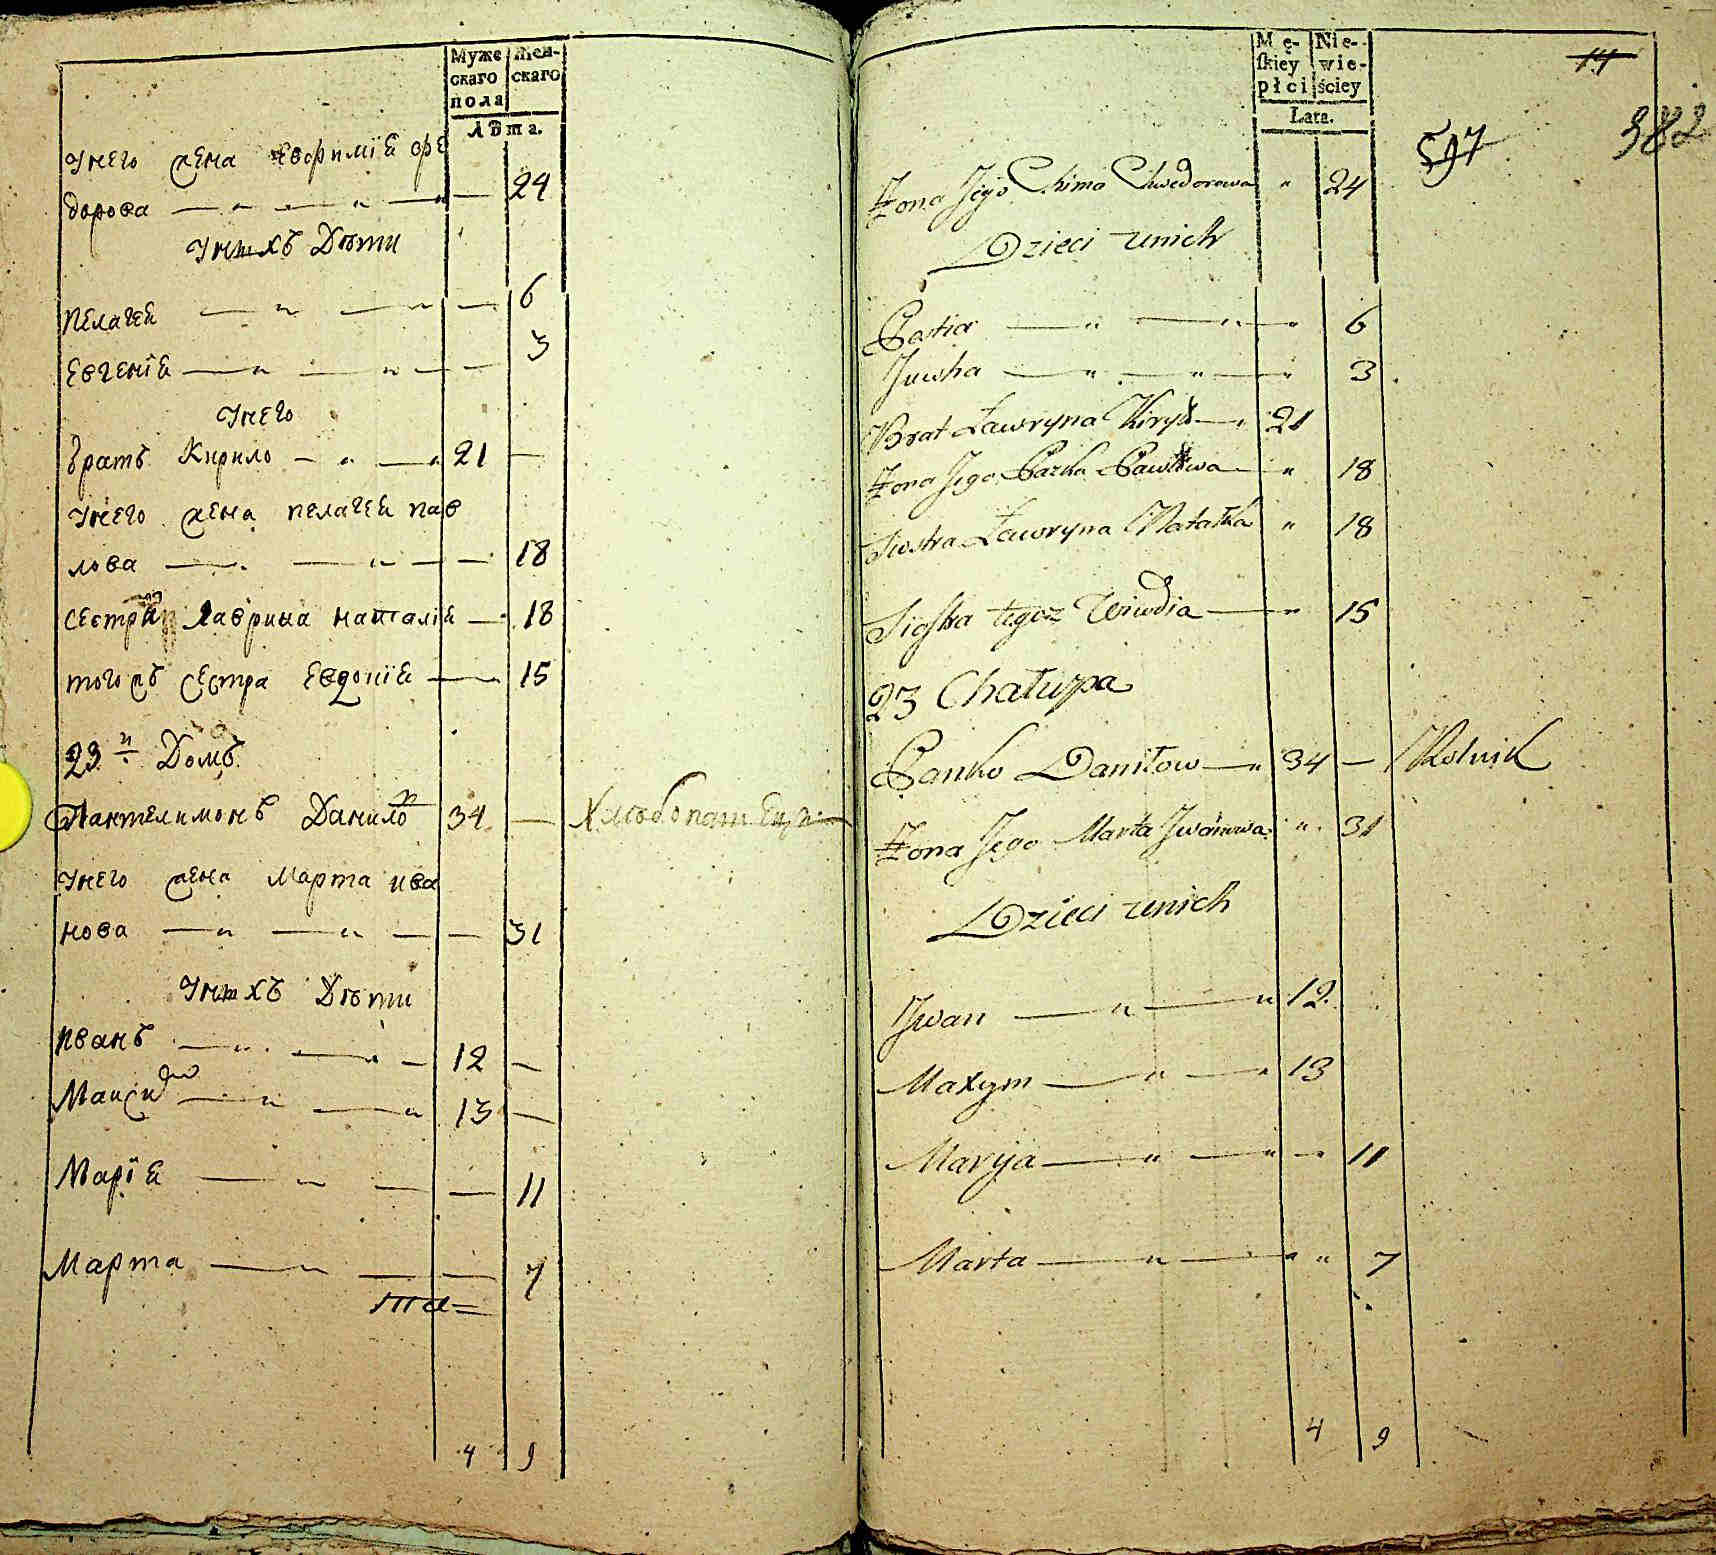 Муже
скаго
пола
Жен-
скаго
Лѣта.
Унего жена Евфимiѧ Фе
дорова — „ — „ — — 24
Унихъ Дѣти
Пелагеѧ — „ — „ — 6
Евгенiѧ — „ — „ — — 3
Унего
братъ Кирило — „ — „ 21 —
Унего жена Пелагеѧ Пав
лова — „ — „ — — 18
сестра Лаврина Наталiѧ — „ 18
тогожъ сестра Евдокiѧ — 15
23й Домъ
Пантелимонъ Данило 34 —
Унего жена Марта Ива
нова — „ — „ — — 31
Унихъ Дѣти
Иванъ — „ — „ — 12 —
Макси — „ — „ 13 —
Марiѧ — „ — — 11
Марта — „ — — 7
4 9
Mę-
skiey
płci
Nie-
wie-
ściey
Lata.
14
597
382
Żona Jego Chima Chwedorowa „ 24
Dzieci unich
Pastia — „ — „ — „ 6
Juwha — „ — „ — „ 3
Brat Ławryna Kiryk — „ 21
Żona Jego Pazka Pawłowa — „ 18
Siostra Ławryna Natałka „ 18
Siostra tegoż — „ 15
23 Chałupa
Panko Daniłow — „ 34 — Rolnik
Żona Jego Marta Jwanowa „ 31
Dzieci unich
Jwan — „ — „ 12
Maxym — „ — „ 13
Maryja — „ — „ — „ 11
Marta — „ — „ „ 7
4 9